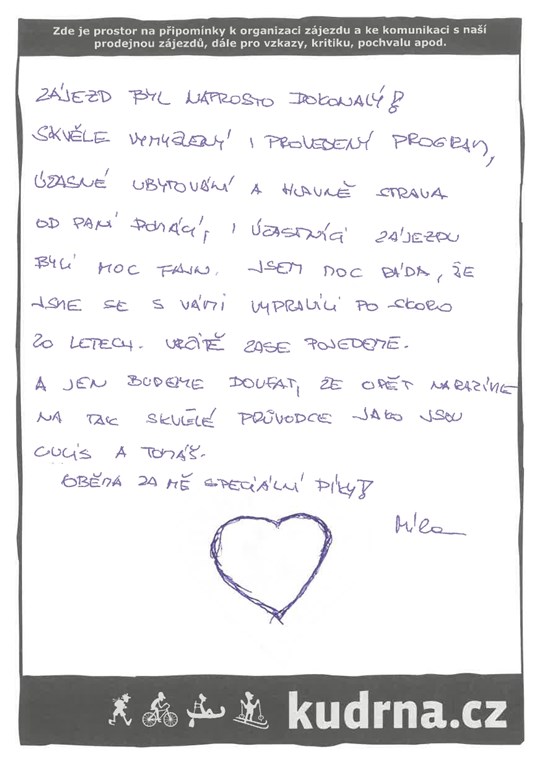 Zde je prostor na připomínky k organizaci zájezdu a ke komunikaci s naší
prodejnou zájezdů, dále pro vzkazy, kritiku, pochvalu apod.
ZÁJEZD BYL NAPROSTO DOKONALÝ!
SKVĚLE VYMYŠLENÝ I PROVEDENÝ PROGRAM,
ÚŽASNÉ UBYTOVÁNÍ A HLAVNĚ STRAVA
OD PANÍ DOMÁCÍ, I ÚČASTNÍCI ZÁJEZDU
BYLI MOC FAJN. JSEM MOC RÁDA, ŽE
JSME SE S VÁMI VYPRAVILI PO SKORO
20 LETECH. URČITĚ ZASE POJEDEME.
A JEN BUDEME DOUFAT, ŽE OPĚT NARAZÍME
NA TAK SKVĚLÉ PRŮVODCE JAKO JSOU
A TOMÁŠ.
OBĚMA ZA MĚ SPECIÁLNÍ DÍKY!
kudrna.cz